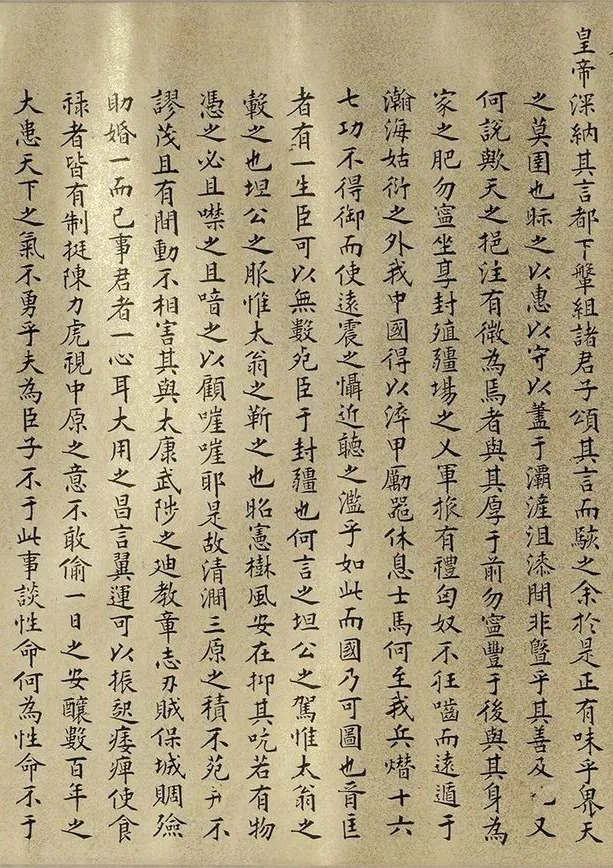 皇帝深納其言都下犖組諸君子頌其言而駭之余於是正有味乎畀天
之莫圉也眎之以惠以守以蓋于灞滻沮漆間非暨乎其善及又
何說歟天之挹注有徵為焉者與其厚于前勿寍豐于後與其身為
家之肥勿寍坐享封殖疆場之乂軍旅有禮匈奴不狂嚙而遠遁于
瀚海姑衍之外我中國得以淬甲勵器休息士馬何至我兵熸十六
七功不得御而使遠震之懾近聴之濫乎如此而國乃可圖也晉匡
者有一生臣可以無數宛臣于封疆也何言之坦公之駕惟太翁之
轂之也坦公之服惟太翁之靳之也昭憲樹風安在抑其吭若有物
憑之必且噤之且喑之以顧嘊嘊耶是故清澗三原之積不苑不
謬茂且有間動不相害其與太康武陟之迪教章志刃賊保城賙殮
助婚一而已事君者一心耳大用之昌言翼運可以振起痿痺使食
祿者皆有制挺陳力虎視中原之意不敢偷一日之安釀數百年之
大患天下之氣不勇乎夫為臣子不于此事談性命何為性命不于